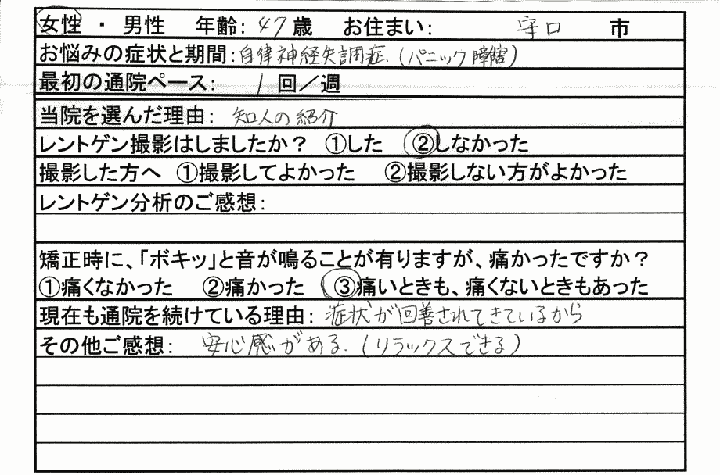 女性・男性 年齢:47歳 お住まい: 守口 市
お悩みの症状と期間:自律神経失調症.(パニック障害)
最初の通院ペース: 1 回/週
当院を選んだ理由: 知人の紹介
レントゲン撮影はしましたか? ①した ②しなかった
撮影した方へ ①撮影してよかった ②撮影しない方がよかった
レントゲン分析のご感想:
矯正時に、「ボキッ」と音が鳴ることが有りますが、痛かったですか?
①痛くなかった ②痛かった ③痛いときも、痛くないときもあった
現在も通院を続けている理由:症状が回善されてきているから
その他ご感想: 安心感がある.(リラックスできる)